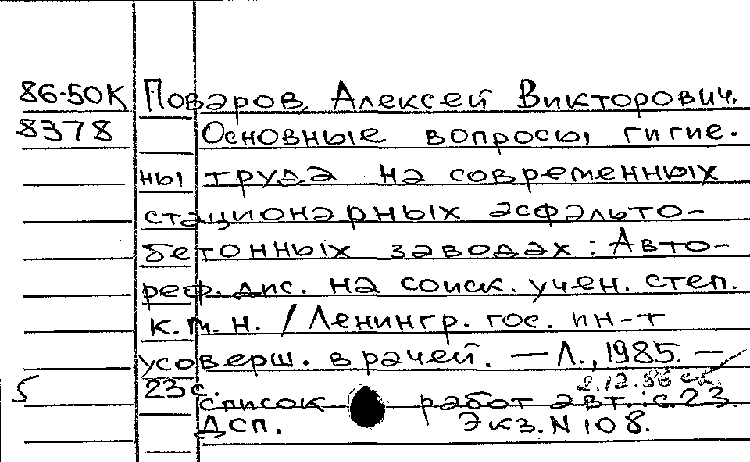 86-50К Поваров, Алексей Викторович.
8378 Основные вопросы гигие-
ны труда на современных
стационарных асфальто-
бетонных заводах: Авто-
реф. дис. на соиск. учен. степ.
к.м.н. / Ленингр. гос. ин-т
усоверш. врачей. — Л., 1985. —
23с. 2.12.86
5 список работ авт.: с.23.
ДСП. Экз. N 108.